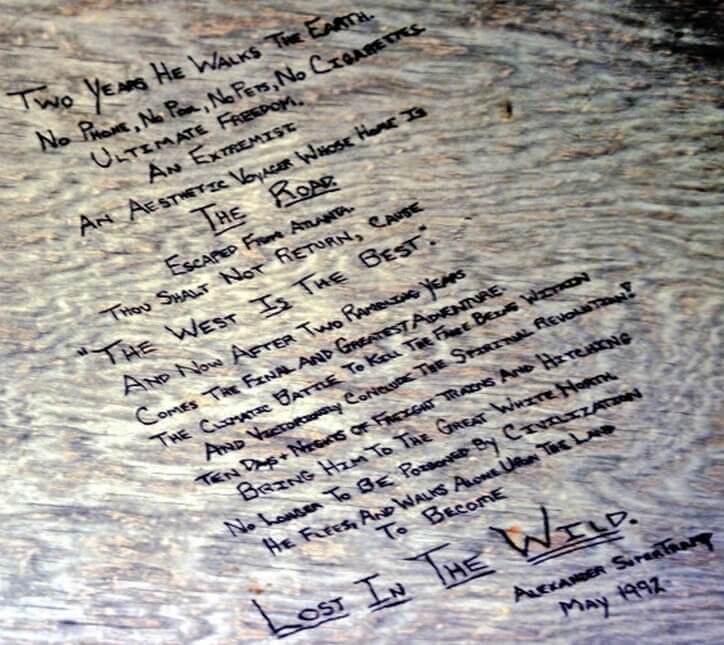 Two Years He Walks The Earth.
No Phone, No Pool, No Pets, No Cigarettes
Ultimate Freedom.
An Extremist
An Aesthetic Voyager Whose Home Is
The Road.
Escaped From Atlanta.
Thou Shalt Not Return, Cause
"The West Is The Best".
And Now After Two Rambling Years
Comes The Final And Greatest Adventure.
The Climatic Battle To Kill The False Being Within
And Victoriously Conclude The Spiritual Revolution!
Ten Days + Nights Of Freight Trains And Hitching
Bring Him To The Great White North.
No Longer To Be Poisoned By Civilization
He Flees, And Walks Alone Upon The Land
To Become
Lost In The Wild.
Alexander SuperTramp
May 1992